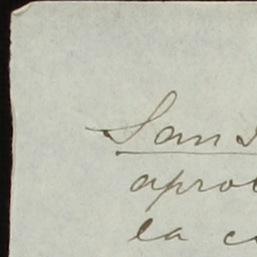 San
apro
la c